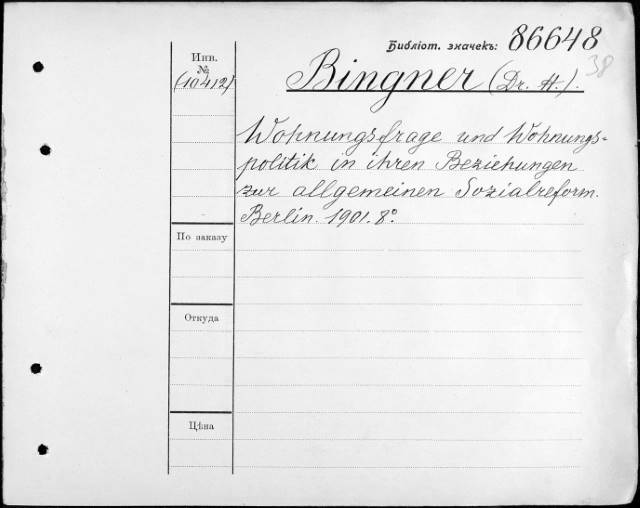 Библіот. значекъ: 86648
38
Инв.
№
(10412)
Bingner (Dr. H.).
Wohnungsfrage und Wohnungs=
politik in ihren Beziehungen
zur allgemeinen Sozialreform.
Berlin. 1901. 8º
По заказу
Откуда
Цѣна